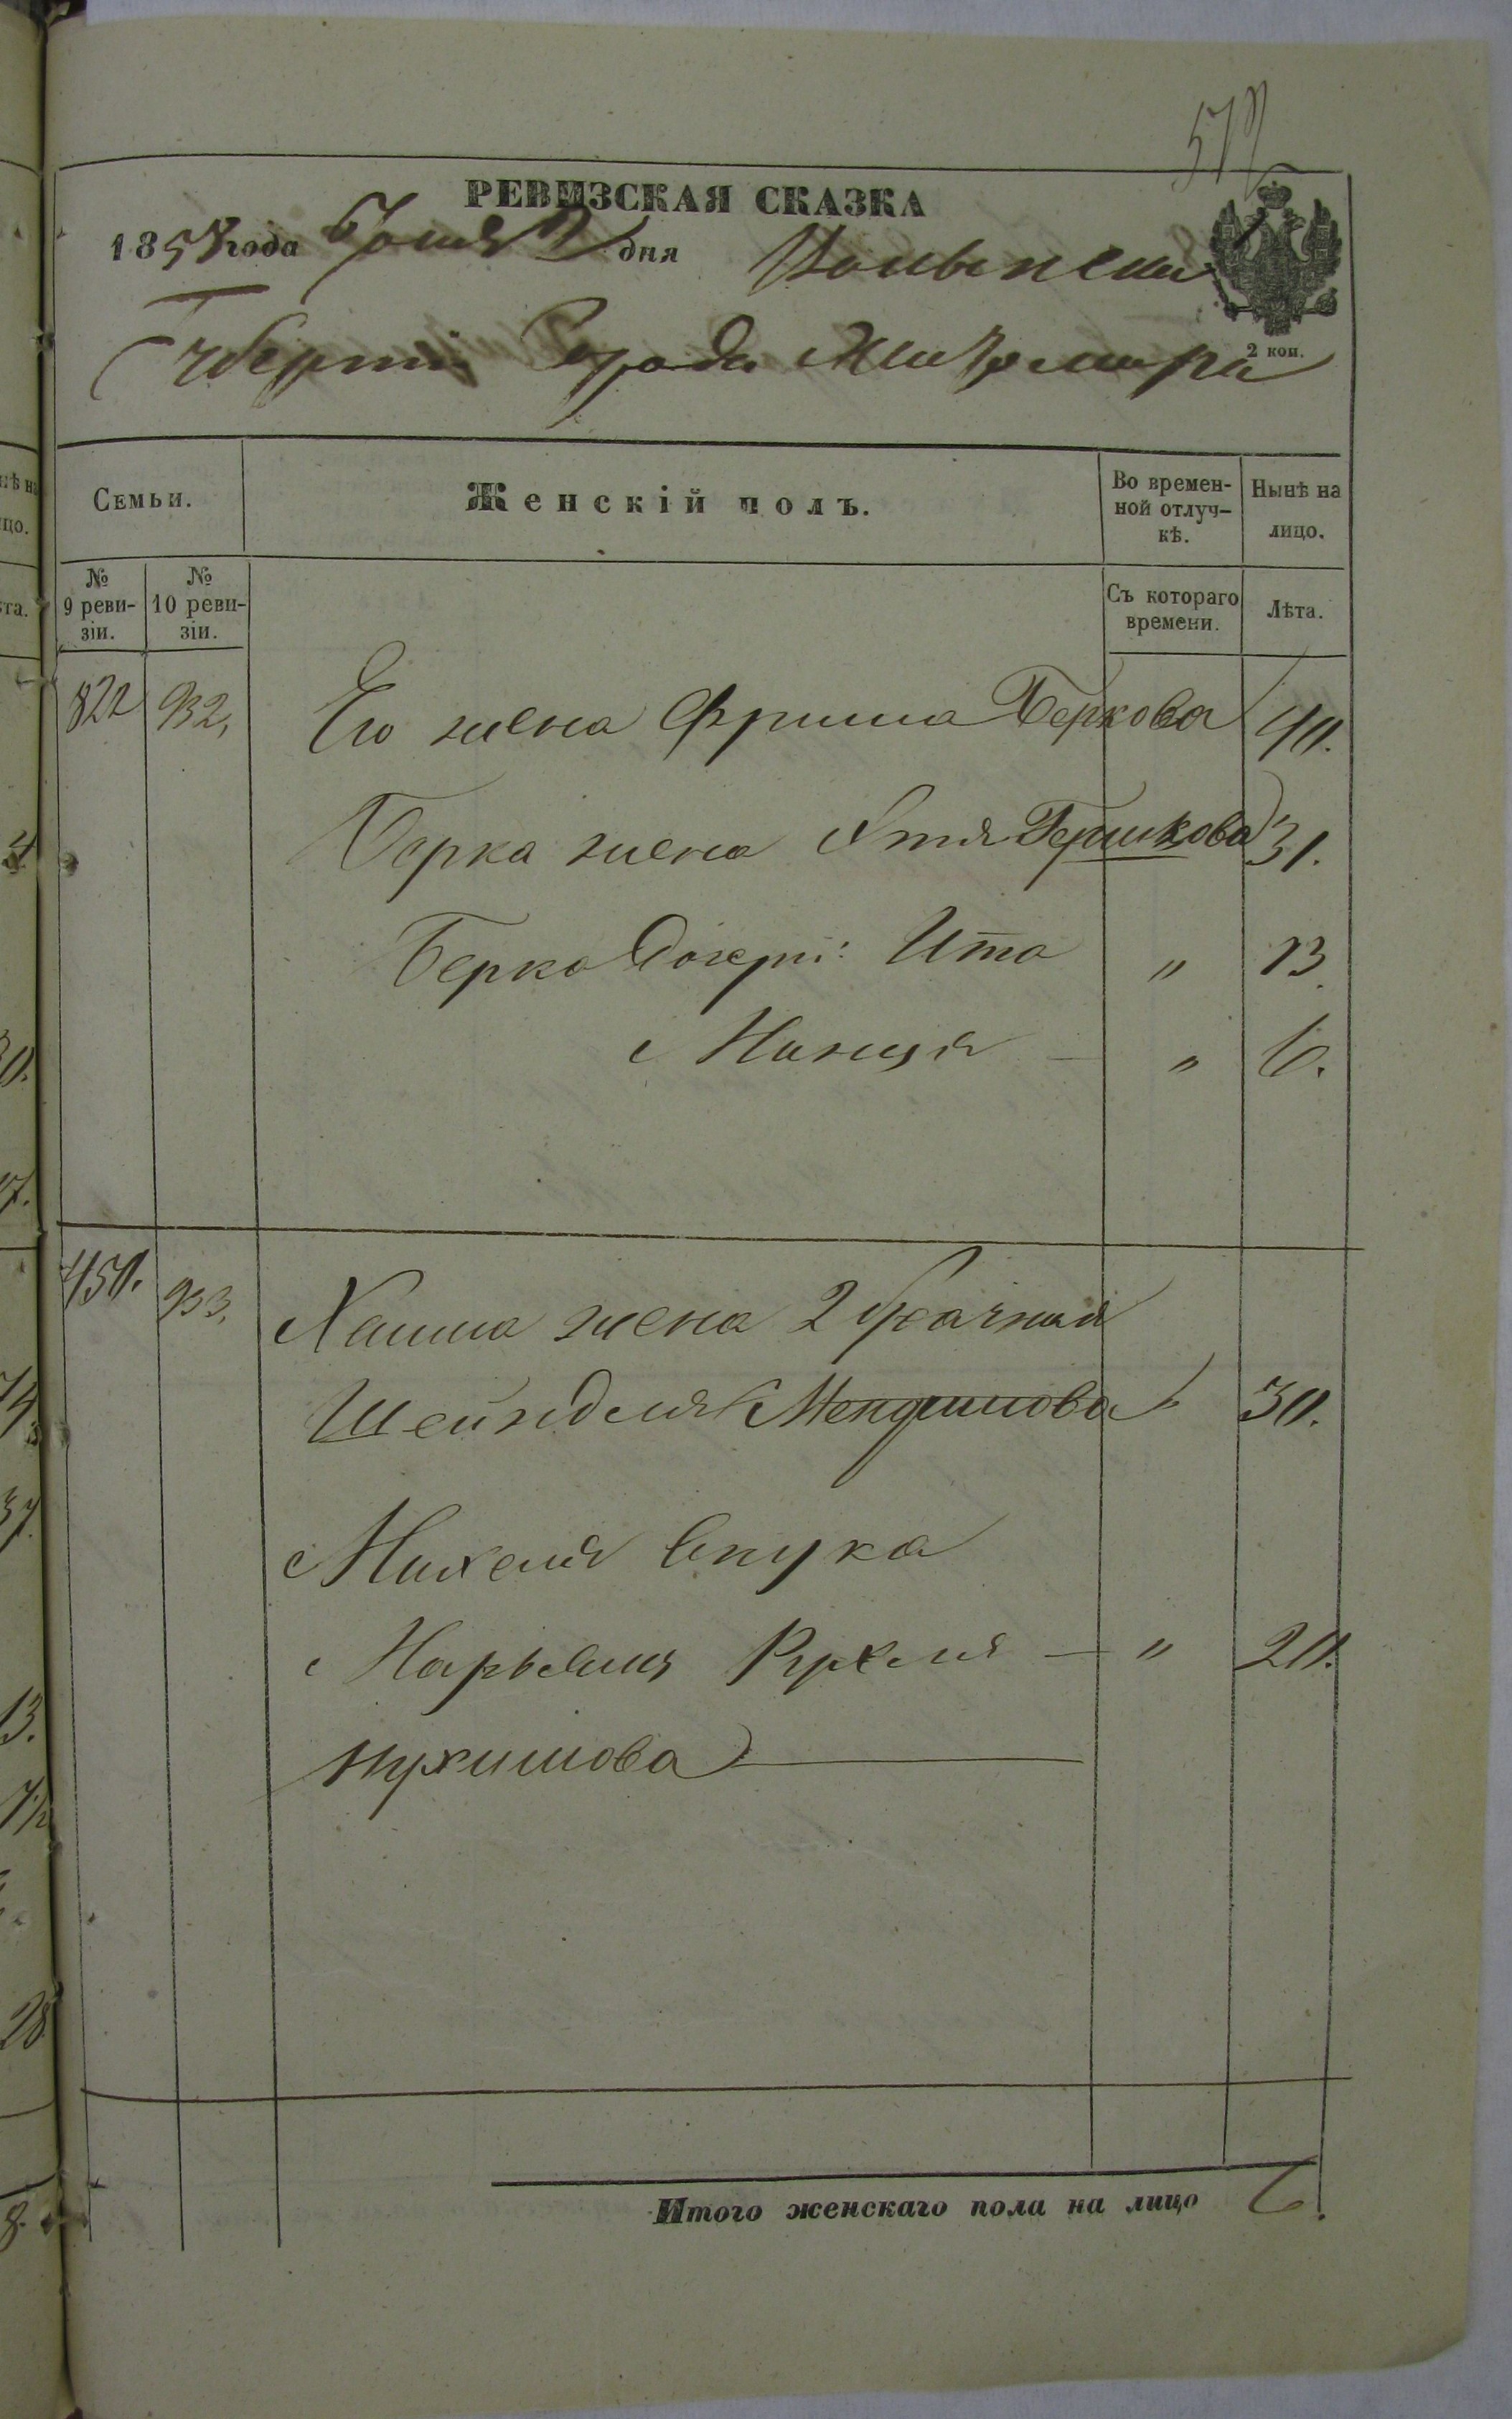 РЕВИЗСКАЯ СКАЗКА
1858 года Іюня 2 дня Волынской
Губерніи Города Житомира
2 коп.
Семьи.
Женскій полъ.
Во времен-
ной отлуч-
кѣ.
Нынѣ на
лицо.
№
9 реви-
зіи.
№
10 реви-
зіи.
Съ котораго
времени.
Лѣта.
822 932, Его жена Фрима Беркова 40.
Берка жена Этя Гершкова 31.
Берка дочери: Ита " 13.
Минця — " 6.
450. 933. Хаима жена 2 брачная
Шейндля 30.
Михеля внука
Марьямя Рухля — " 20.
Нухимова
Итого женскаго пола на лицо 6.